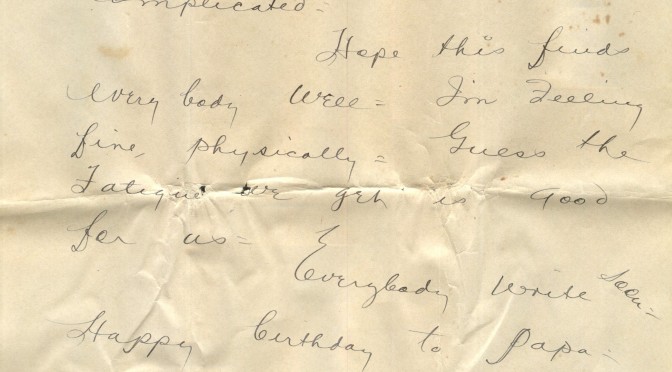 complicated =
Hope this finds
everybody well = I'm Feeling
fine, physically = Guess the
Fatigue we get is good
for us =
Everybody write soon =
Happy birthday to Papa =